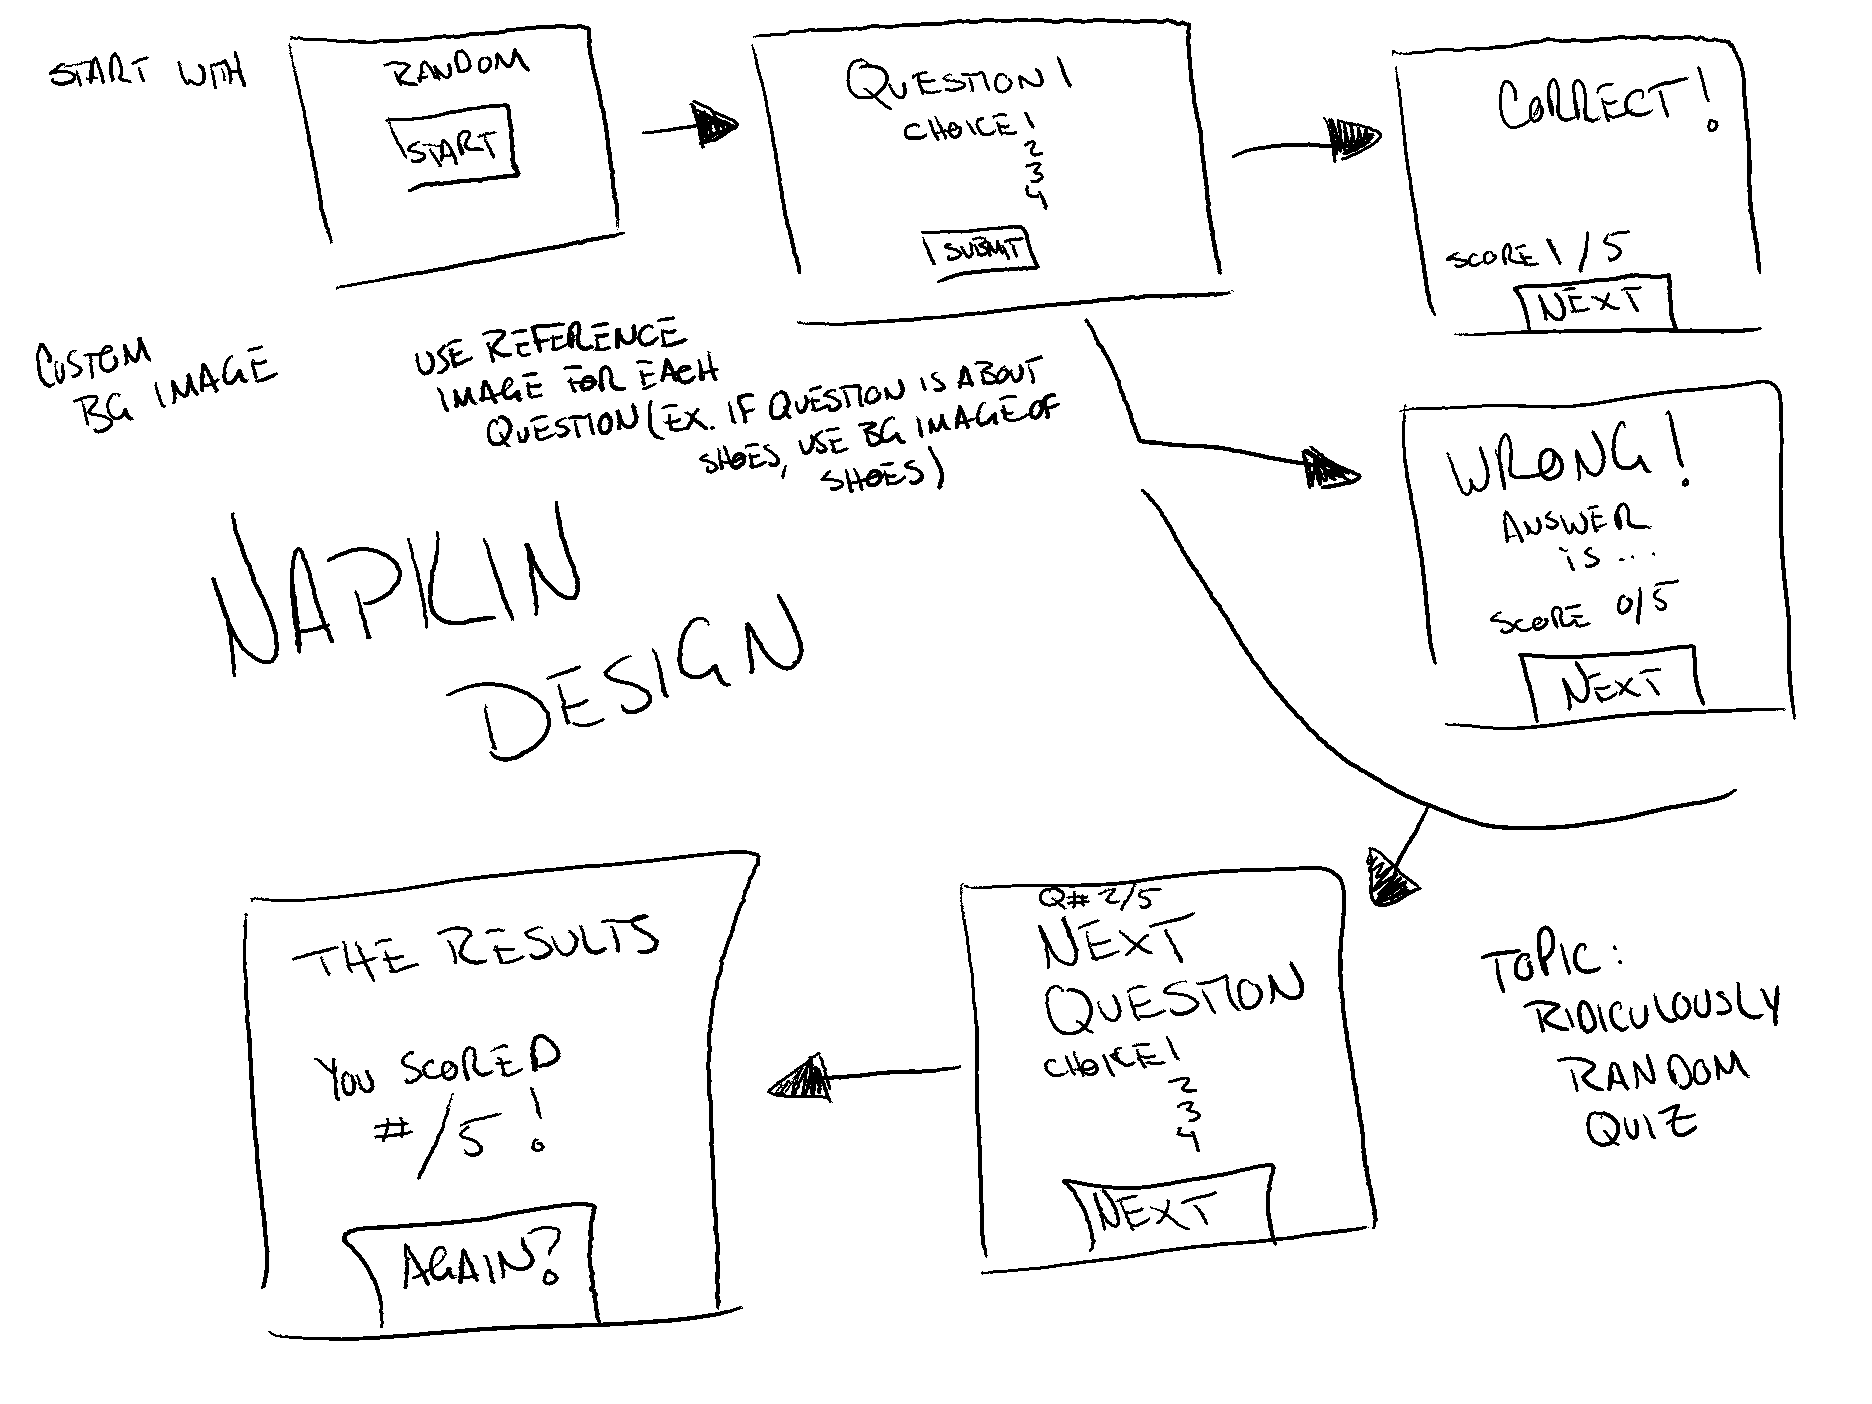 START WITH
RANDOM
START
QUESTION 1
CHOICE 1
2
3
4
SUBMIT
CORRECT!
SCORE 1/5
NEXT
CUSTOM
BG IMAGE
USE REFERENCE
IMAGE FOR EACH
QUESTION (EX. IF QUESTION IS ABOUT
SHOES, USE BG IMAGE OF
SHOES)
WRONG!
ANSWER
IS...
SCORE 0/5
NEXT
NAPKIN
DESIGN
THE RESULTS
YOU SCORED
#/5!
AGAIN?
Q# 2/5
NEXT
QUESTION
CHOICE 1
2
3
4
NEXT
TOPIC:
RIDICULOUSLY
RANDOM
QUIZ